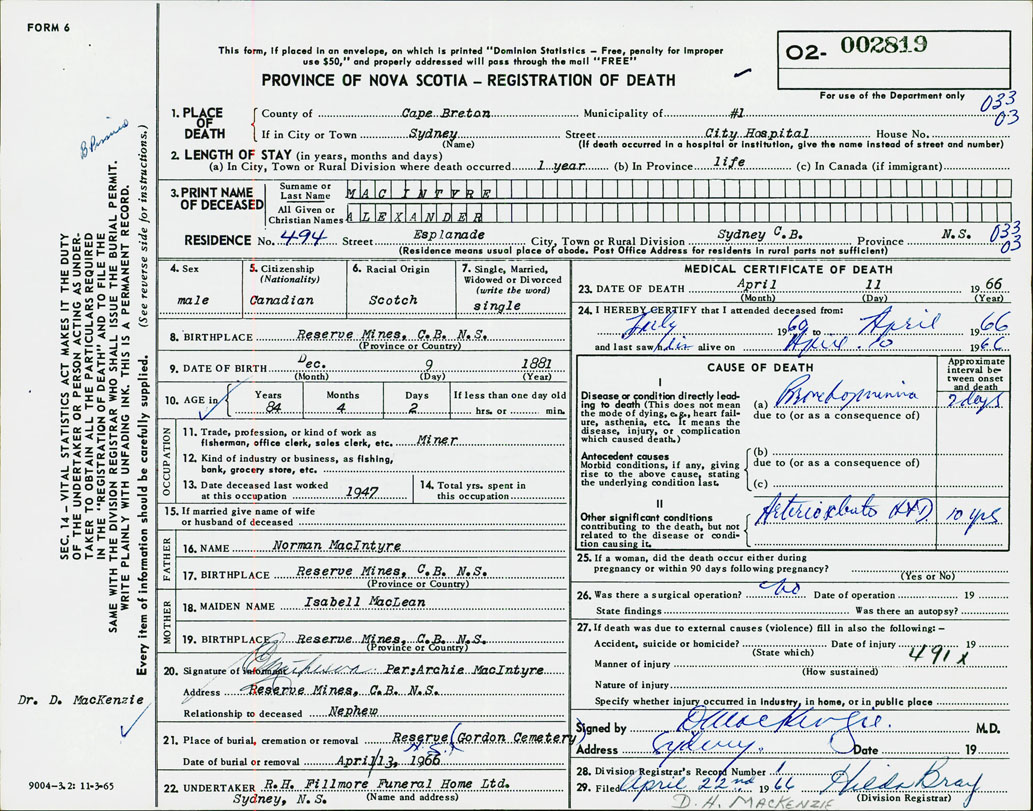 FORM 6
This form, if placed in an envelope, on which is printed "Dominion Statistics — Free, penalty for improper
use $50," and properly addressed will pass through the mail "FREE"
PROVINCE OF NOVA SCOTIA — REGISTRATION OF DEATH
02- 002819
For use of the Department only
033
03
1. PLACE OF DEATH
County of Cape Breton Municipality of #1
If in City or Town Sydney Street City Hospital House No.
(Name) (If death occurred in a hospital or institution, give the name instead of street and number)
2. LENGTH OF STAY (in years, months and days)
(a) In City, Town or Rural Division where death occurred 1 year (b) In Province life (c) In Canada (if immigrant)
3. PRINT NAME OF DECEASED
Surname or Last Name MAC INTYRE
All Given or Christian Names ALEXANDER
RESIDENCE No. 494 Street Esplanade City, Town or Rural Division Sydney C.B. Province N.S. 033
03
(Residence means usual place of abode. Post Office Address for residents in rural parts not sufficient)
4. Sex
male
5. Citizenship
(Nationality)
Canadian
6. Racial Origin
Scotch
7. Single, Married,
Widowed or Divorced
(write the word)
single
8. BIRTHPLACE Reserve Mines, C.B. N.S.
(Province or Country)
9. DATE OF BIRTH Dec. 9 1881
(Month) (Day) (Year)
10. AGE in
Years Months Days If less than one day old
84 4 2 hrs. or min.
OCCUPATION
11. Trade, profession, or kind of work as
fisherman, office clerk, sales clerk, etc. Miner
12. Kind of industry or business, as fishing,
bank, grocery store, etc.
13. Date deceased last worked
at this occupation 1947
14. Total yrs. spent in
this occupation
15. If married give name of wife
or husband of deceased
FATHER
16. NAME Norman MacIntyre
17. BIRTHPLACE Reserve Mines, C.B. N.S.
(Province or Country)
MOTHER
18. MAIDEN NAME Isabell MacLean
19. BIRTHPLACE Reserve Mines, C.B. N.S.
(Province or Country)
20. Signature of informant Per:Archie MacIntyre
Address Reserve Mines, C.B. N.S.
Relationship to deceased Nephew
21. Place of burial, cremation or removal Reserve (Gordon Cemetery)
N.S.
Date of burial or removal April 13, 1966
22. UNDERTAKER R.H. Fillmore Funeral Home Ltd.
Sydney, N.S. (Name and address)
MEDICAL CERTIFICATE OF DEATH
23. DATE OF DEATH April 11 1966
(Month) (Day) (Year)
24. I HEREBY CERTIFY that I attended deceased from:
July 1960 to April 1966
and last saw him alive on April 10 1966
CAUSE OF DEATH
Approximate
interval be-
tween onset
and death
I
Disease or condition directly lead-
ing to death (This does not mean
the mode of dying, e.g., heart fail-
ure, asthenia, etc. It means the
disease, injury, or complication
which caused death.)
(a) 2 days
due to (or as a consequence of)
Antecedent causes
Morbid conditions, if any, giving
rise to the above cause, stating
the underlying condition last.
(b)
due to (or as a consequence of)
(c)
II
Other significant conditions
contributing to the death, but not
related to the disease or condi-
tion causing it.
10 yrs
25. If a woman, did the death occur either during
pregnancy or within 90 days following pregnancy?
(Yes or No)
26. Was there a surgical operation? No Date of operation 19
State findings Was there an autopsy?
27. If death was due to external causes (violence) fill in also the following:—
Accident, suicide or homicide? Date of injury 19
(State which) 491x
Manner of injury
(How sustained)
Nature of injury
Specify whether injury occurred in industry, in home, or in public place
Signed by D MacKenzie. M.D.
Address Sydney. Date 19
28. Division Registrar's Record Number 1
29. Filed April 22nd 1966 Hilda Bray
(Division Registrar)
D. H. MACKENZIE
SEC. 14 — VITAL STATISTICS ACT MAKES IT THE DUTY
OF THE UNDERTAKER OR PERSON ACTING AS UNDER-
TAKER TO OBTAIN ALL THE PARTICULARS REQUIRED
IN THE "REGISTRATION OF DEATH" AND TO FILE THE
SAME WITH THE DIVISION REGISTRAR WHO SHALL ISSUE THE BURIAL PERMIT.
WRITE PLAINLY WITH UNFADING INK. THIS IS A PERMANENT RECORD.
Every item of information should be carefully supplied. (See reverse side for instructions.)
Dr. D. MacKenzie
9004-3.2: 11-3-65